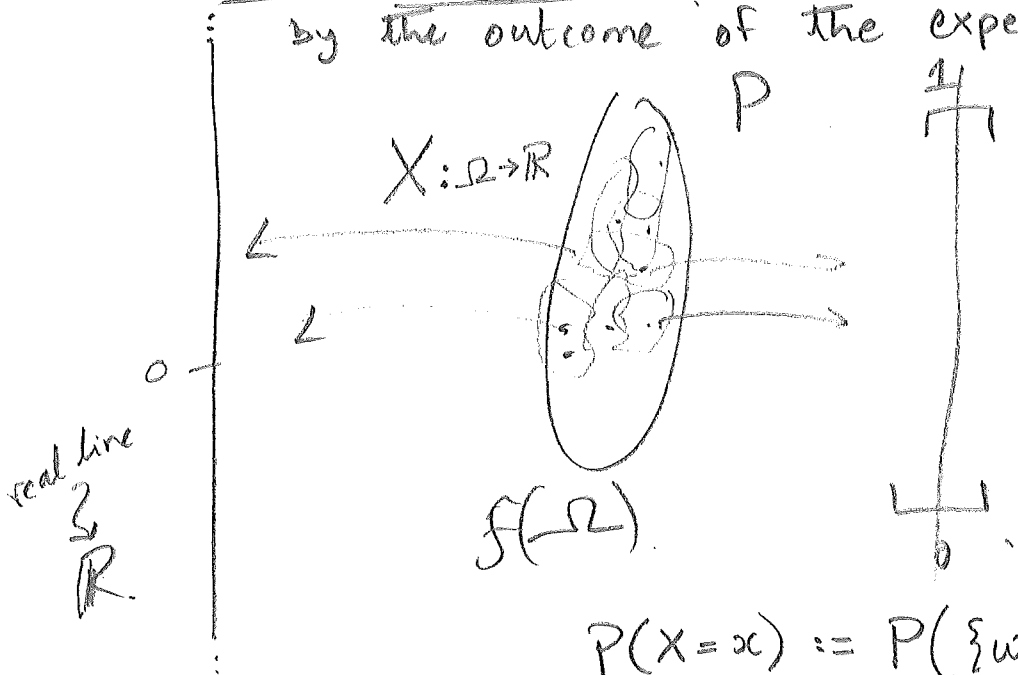 by the outcome of the expe
P
1
X : Ω → ℝ
0
real line
ℝ.
f(Ω).
0
P(X = x) := P({ω